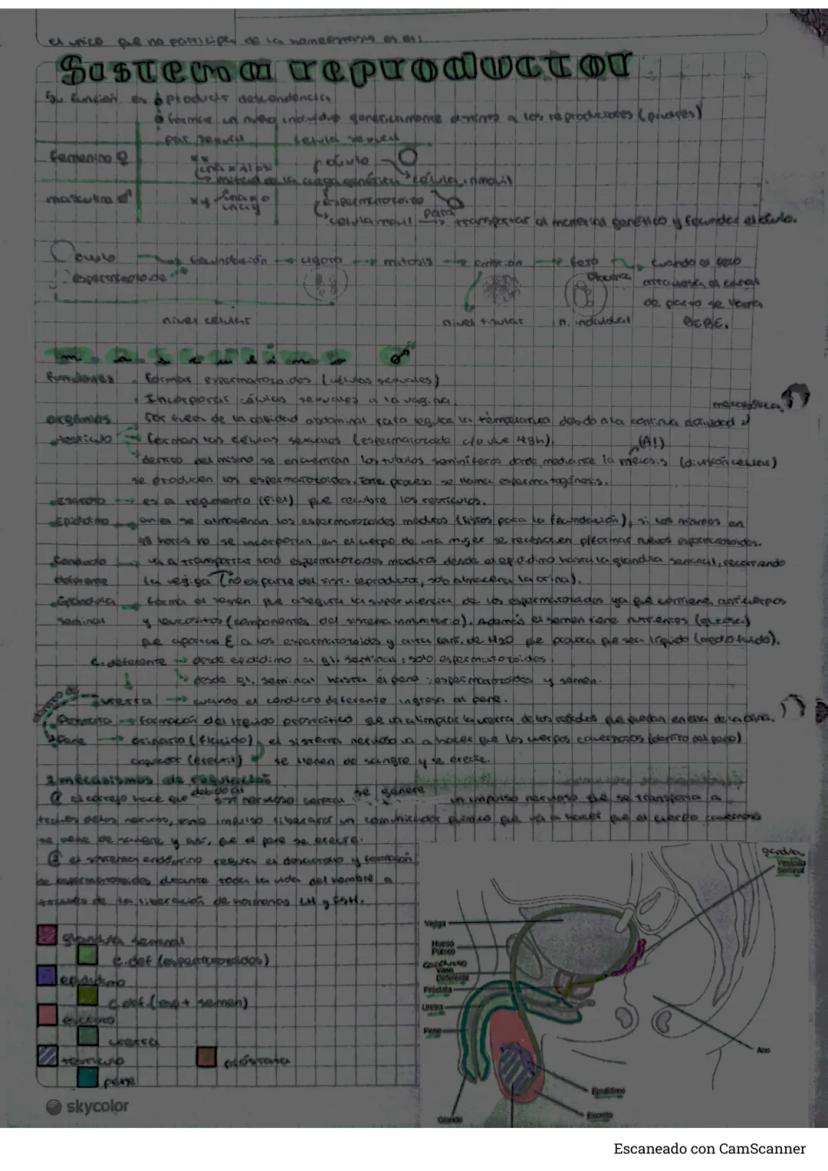 el unico que no participa de la homeostasis es el:
Sistema reproductor
Su función es producir descendencia
formar un nuevo individuo genéticamente a los reproductores (padres)
par sexual célula sexual
femenino ♀ xx óvulo
mitad de la carga genética célula inmóvil
masculino ♂ xy espermatozoide
célula movil para transportar el material genético y fecundar el óvulo.
Óvulo fecundación → cigoto → mitosis → → feto → cuando el feto
espermatozoide atraviesa el canal
de parto se llama
nivel celular nivel tisular n. individual BEBE.
masculino ♂
funciones . Formar espermatozoides (células sexuales)
. Incorporar células sexuales a la vagina.
organos
testículo → forman las células sexuales (espermatozoide c/u vive 48h). (A!)
dentro del mismo se encuentran los tubulos seminiferos donde mediante la meiosis (división celular)
se producen los espermatozoides. Este proceso se llama espermatogénesis.
escroto → es el tegumento (piel) que recubre los testículos.
Epidídimo → en el se almacenan los espermatozoides maduros (listos para la fecundación), si los mismos en
48 horas no se incorporan en el cuerpo de una mujer se
Conducto → va a transportar espermatozoides maduros desde el epidídimo hasta la glandula seminal, recorriendo
deferente la vejiga (no es parte del sist. reproductor, solo almacena la orina).
Glándula → forma el semen que asegura la supervivencia de los espermatozoides ya que contiene anticuerpos
seminal y leucocitos (componentes del sistema inmunitario). Además el semen tiene nutrientes (glucosa)
que aportan E a los espermatozoides y alta cant. de H2O que provoca que sea líquido (medio fluido).
c. deferente → desde epidídimo a gl. seminal: solo espermatozoides.
desde gl. seminal hasta el pene: espermatozoides y semen.
uretra → cuando el conducto deferente ingresa al pene.
Próstata → formación del líquido prostático que va a limpiar la uretra de los residuos que quedan en ella de la orina.
Pene → urinario (flácido) el sistema nervioso va a hacer que los cuerpos cavernosos (dentro del pene)
(erecto) se llenen de sangre y se erecte.
2 mecanismos de regulación
① hace que debido al sist nervioso central se genere un impulso nervioso que se transporta a
través de los nervios, este impulso liberara un comunicador químico que va a hacer que el cuerpo cavernoso
se llene de sangre y así, que el pene se erecte.
② el sistema endócrino regula el desarrollo y formación
de espermatozoides durante toda la vida del hombre a
través de la liberación de hormonas LH y FSH.
glándula seminal
c. def (espermatozoides)
epidídimo
c. def (esp + semen)
escroto
uretra
testículo próstata
pene
glándula
Vesícula
Seminal
Vejiga
Hueso
Púbico
conducto
Vaso
Deferente
Próstata
Uretra
Pene
Ano
Epidídimo
Escroto
Glande
skycolor
Escaneado con CamScanner